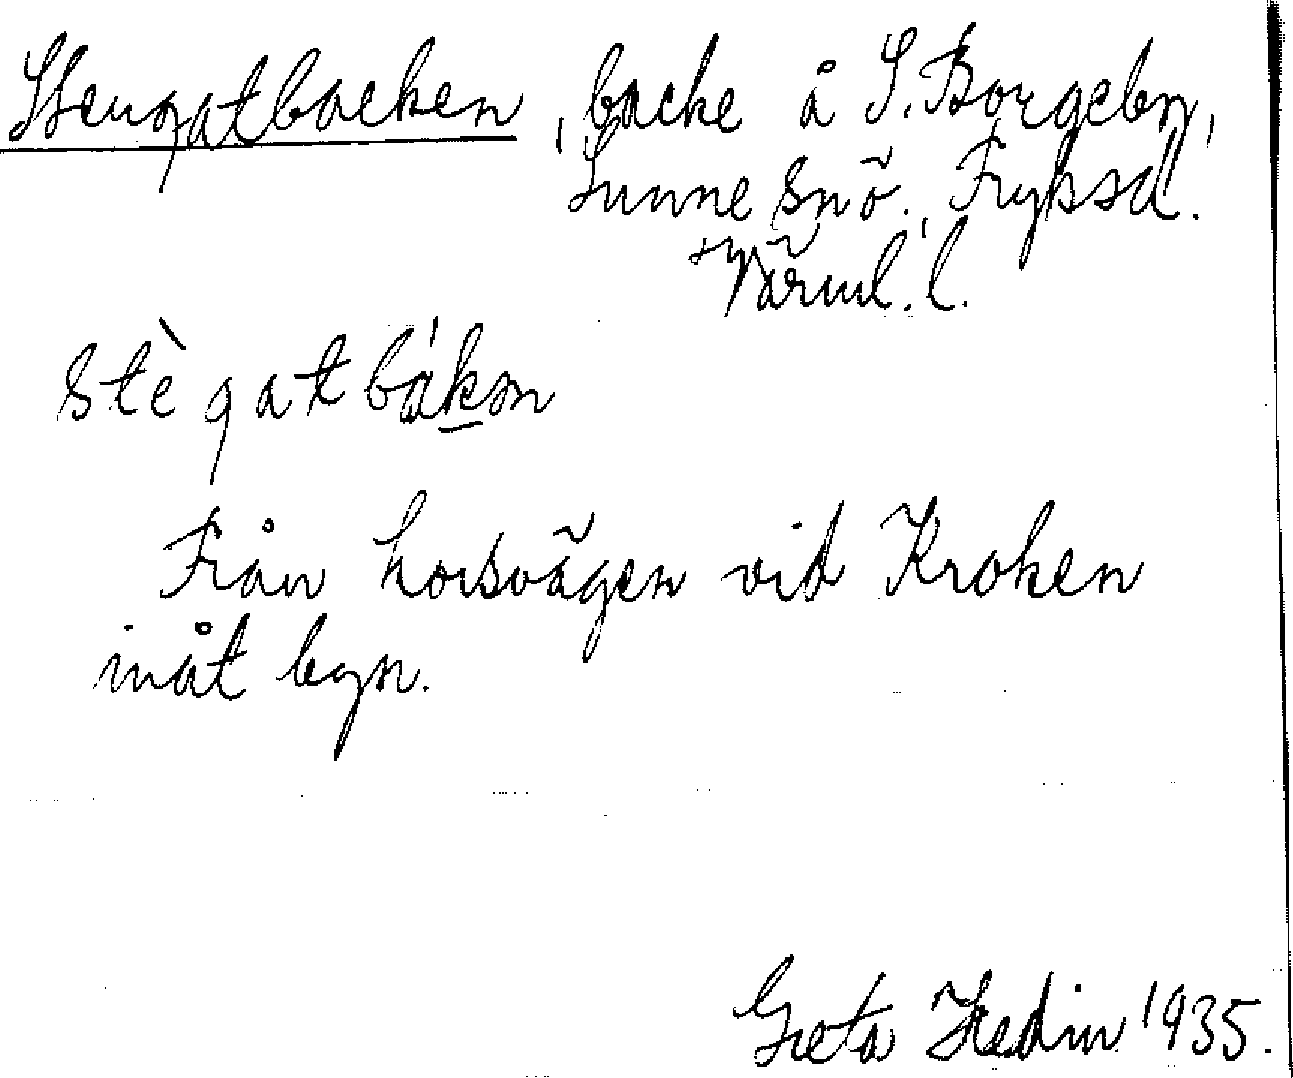 Stengatbacken, backe å S. Borgeby,
Sunne snö., Fryksd.
Värml. l.
stè gatbákən
Från korsvägen vid Kroken
inåt byn.
Greta Hedin 1935.